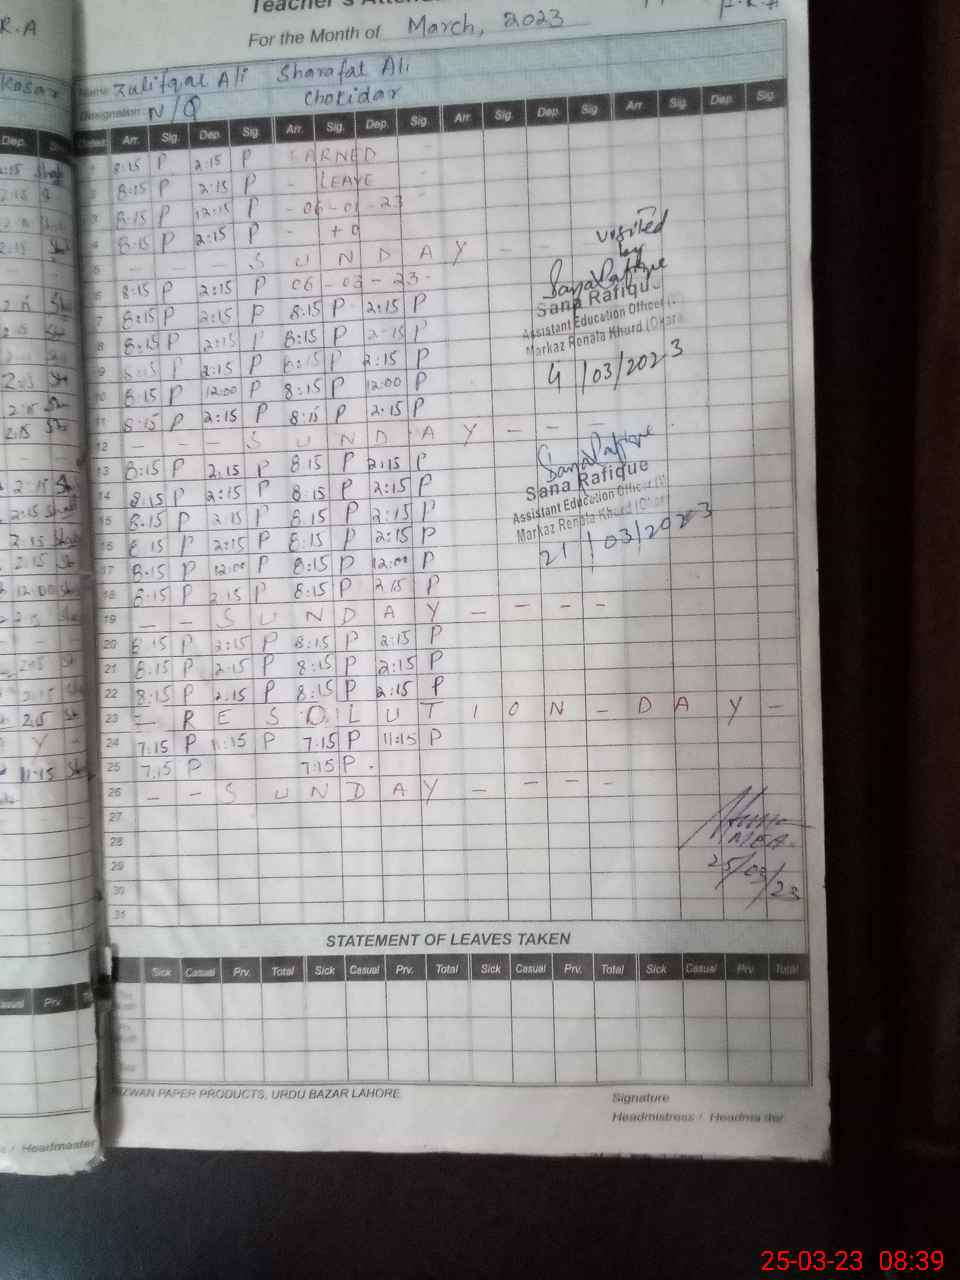 Teacher's
R.A
For the Month of March, 2023
Kosar
Name Zulifqar Ali Sharafat Ali
Designation N/Q Chokidar
Dep. Arr. Sig. Dep. Sig. Arr. Sig. Dep. Sig. Arr. Sig. Dep. Sig. Arr. Sig. Dep. Sig.
8:15 P 2:15 P EARNED
8:15 P 2:15 P - LEAVE
8:15 P 12:15 P - 06-01-23
8:15 P 2:15 P - to
5 - - - S U N D A Y - -
6 8:15 P 2:15 P 06-03-23-
7 8:15 P 2:15 P 8:15 P 2:15 P
8 8:15 P 2:15 P 8:15 P 2:15 P
9 8:15 P 2:15 P 8:15 P 2:15 P
10 8:15 P 12:00 P 8:15 P 12:00 P
11 8:15 P 2:15 P 8:15 P 2:15 P
12 - - - S U N D A Y - - -
13 8:15 P 2:15 P 8:15 P 2:15 P
14 8:15 P 2:15 P 8:15 P 2:15 P
15 8:15 P 2:15 P 8:15 P 2:15 P
16 8:15 P 2:15 P 8:15 P 2:15 P
17 8:15 P 12:00 P 8:15 P 12:00 P
18 8:15 P 2:15 P 8:15 P 2:15 P
19 - - S U N D A Y - - - -
20 8:15 P 2:15 P 8:15 P 2:15 P
21 8:15 P 2:15 P 8:15 P 2:15 P
22 8:15 P 2:15 P 8:15 P 2:15 P
23 - R E S O L U T I O N - D A Y -
24 7:15 P 11:15 P 7:15 P 11:15 P
25 7:15 P 7:15 P .
26 - - S U N D A Y - - - -
27
28
29
30
31
visited
by
Sana Rafique
Sana Rafique
Assistant Education Officer
Markaz Renala Khurd (Okara
4/03/2023
Sana Rafique
Sana Rafique
Assistant Education Officer
Markaz Renala Khurd
21/03/2023
MEA.
25/03/23
STATEMENT OF LEAVES TAKEN
Sick Casual Prv. Total Sick Casual Prv. Total Sick Casual Prv. Total Sick Casual Prv. Total
RIZWAN PAPER PRODUCTS, URDU BAZAR LAHORE
Signature
Headmistress / Headmaster
/ Headmaster
25-03-23 08:39